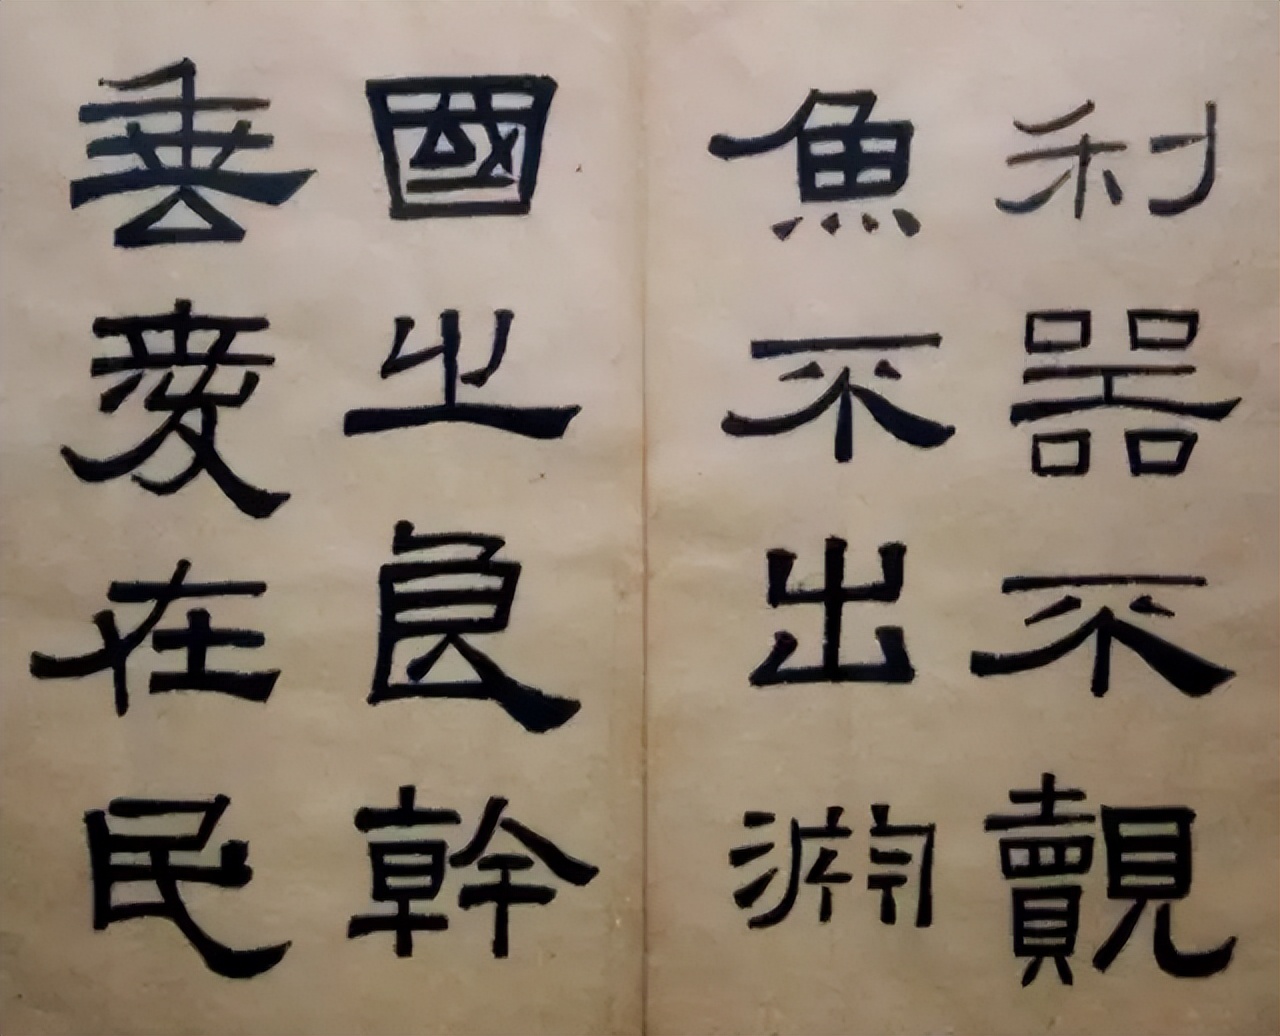 利器不覿
魚不出渊
國之良幹
垂愛在民